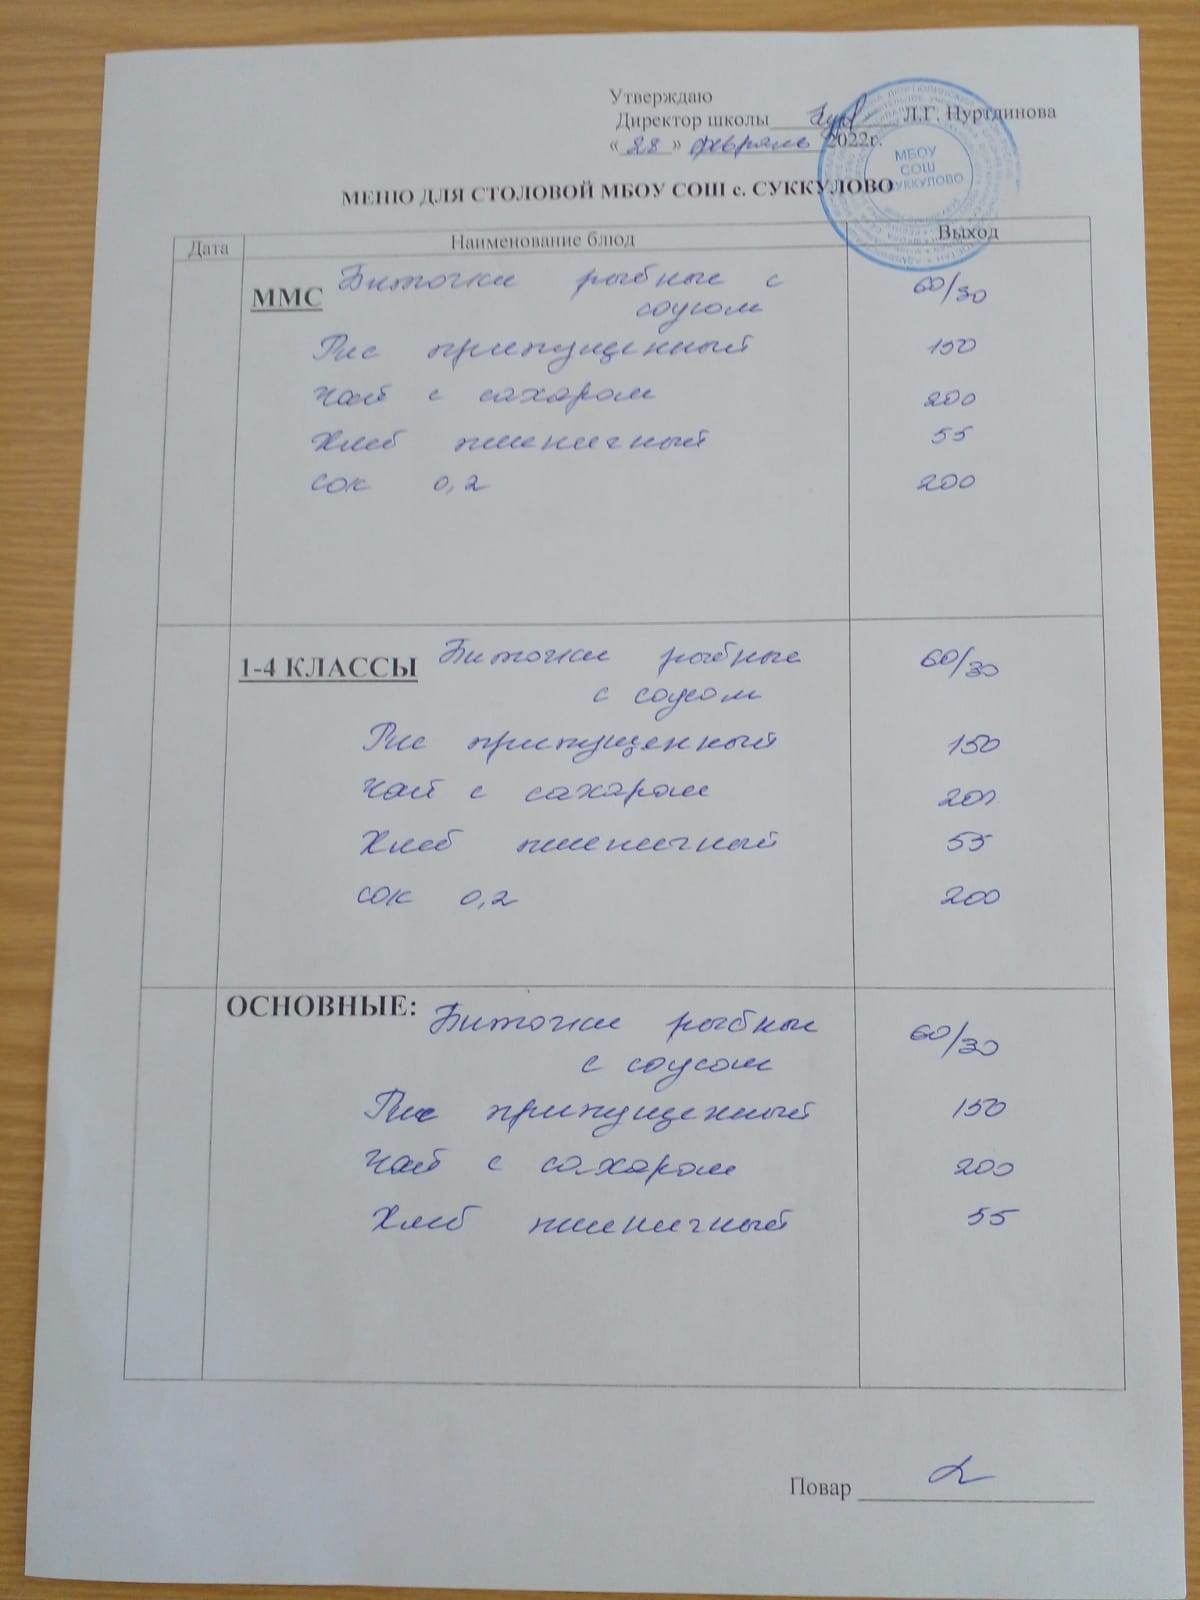 Утверждаю
Директор школы Л.Г. Нуртдинова
« 28 » февраль 2022г.
МБОУ
СОШ
СУККУЛОВО
МЕНЮ ДЛЯ СТОЛОВОЙ МБОУ СОШ с. СУККУЛОВО
Дата Наименование блюд Выход
ММС Биточки рыбные с 60/30
соусом
Рис припущенный 150
Чай с сахаром 200
Хлеб пшеничный 55
сок 0,2 200
1-4 КЛАССЫ Биточки рыбные 60/30
с соусом
Рис припущенный 150
Чай с сахаром 200
Хлеб пшеничный 55
сок 0,2 200
ОСНОВНЫЕ: Биточки рыбные 60/30
с соусом
Рис припущенный 150
Чай с сахаром 200
Хлеб пшеничный 55
Повар